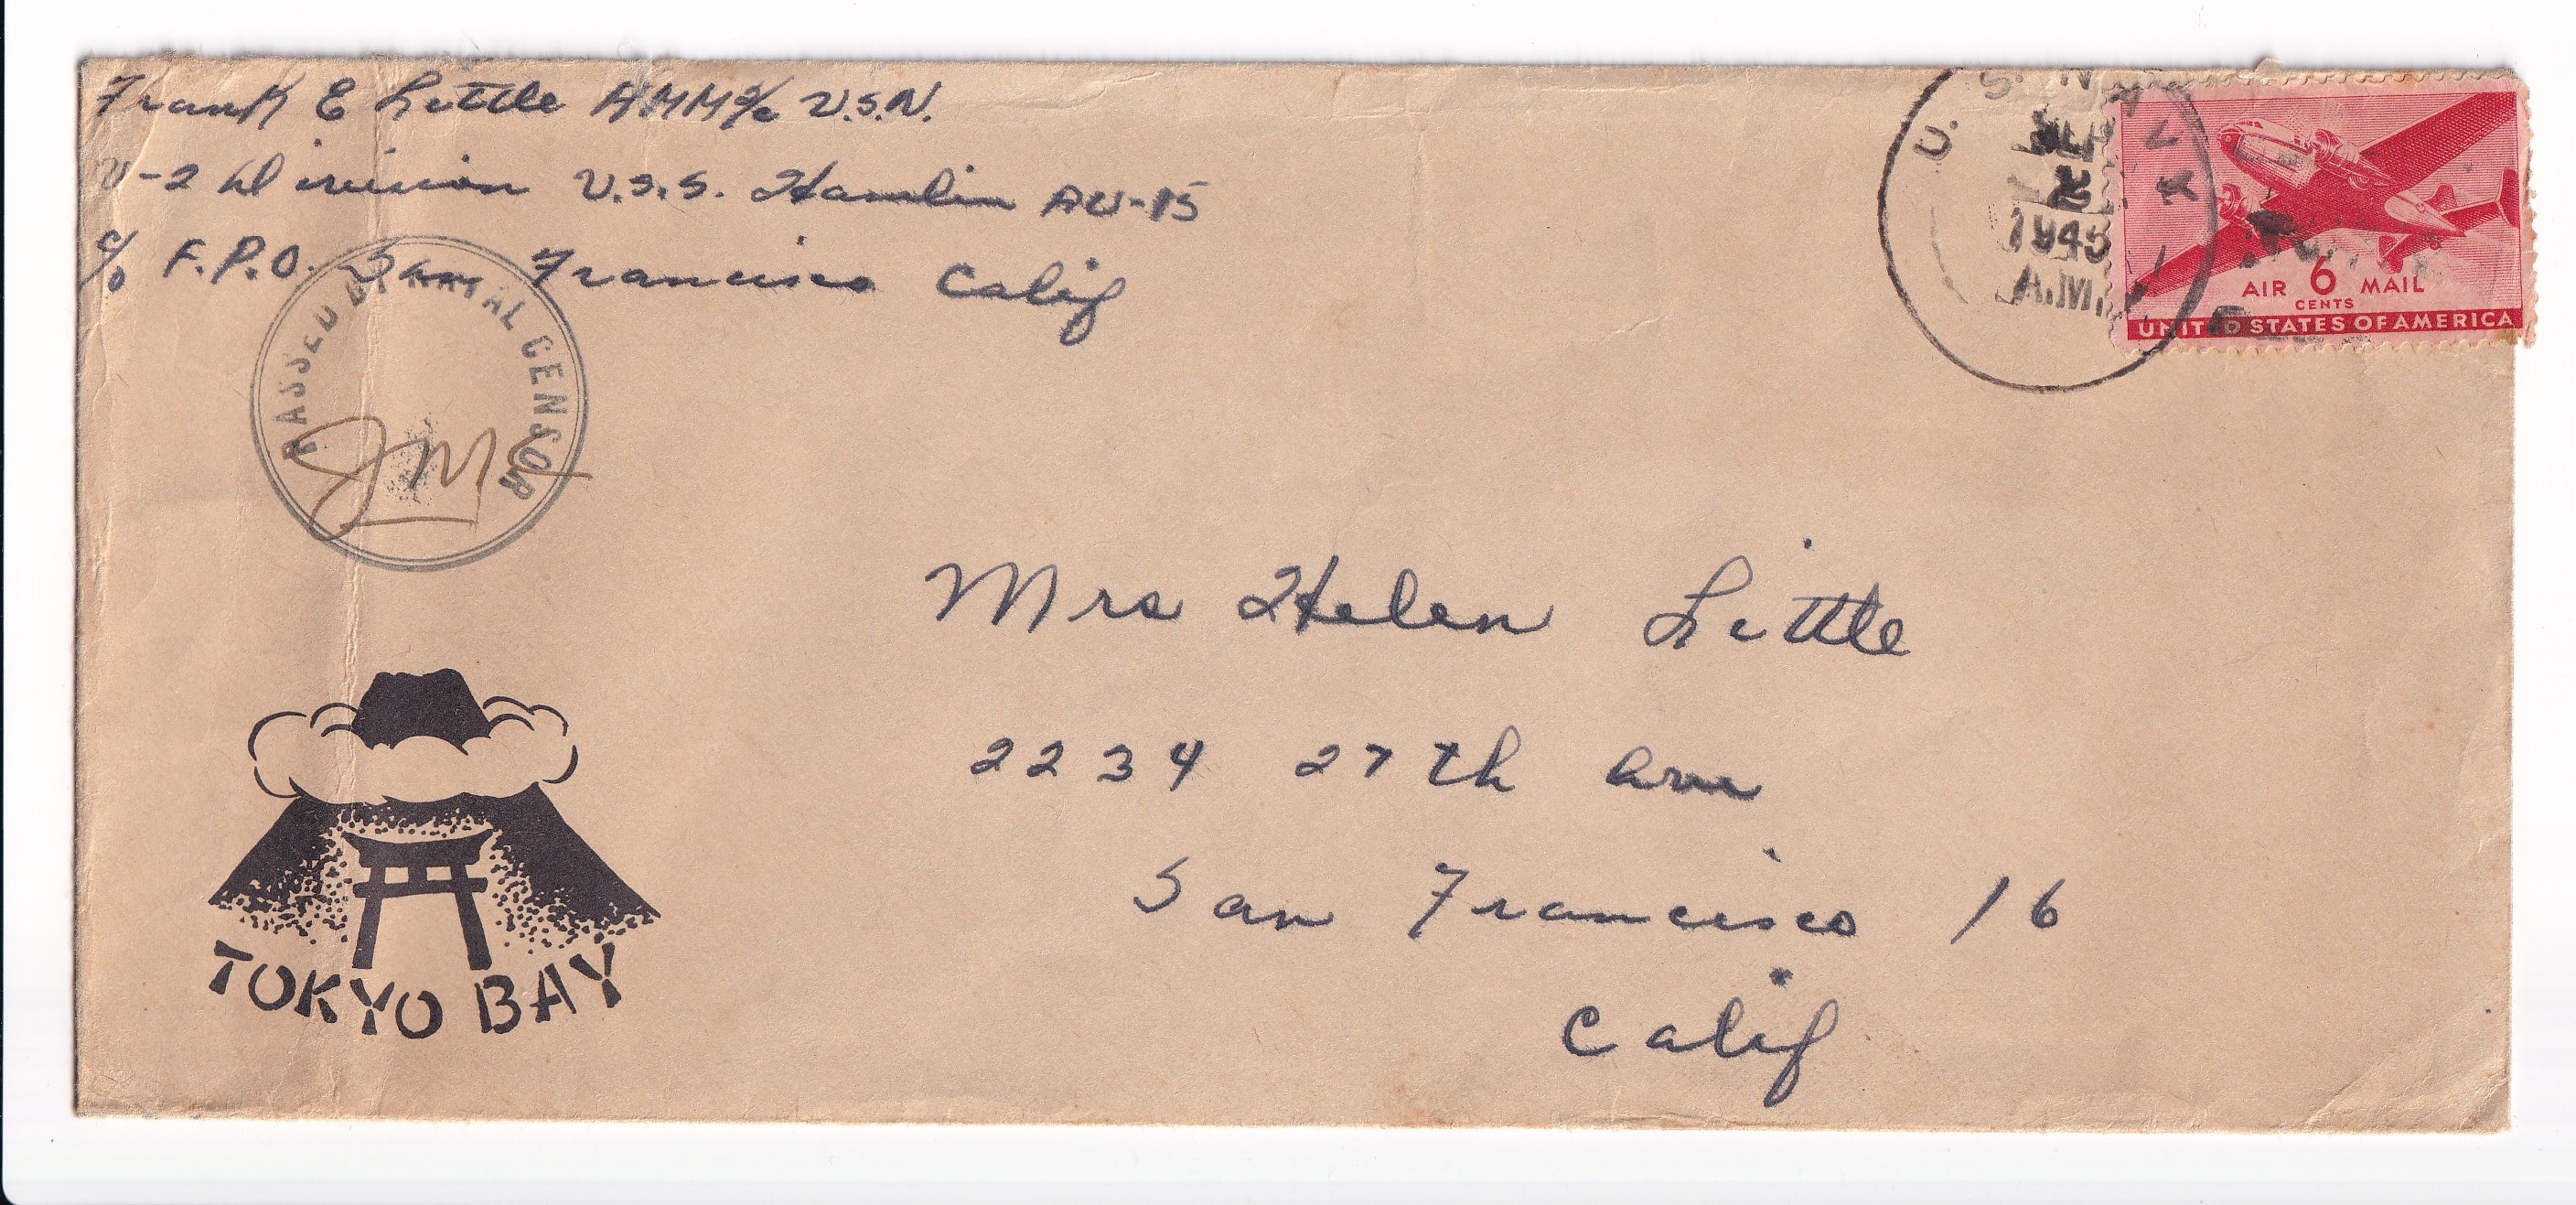 Frank E Little AMM 2/c U.S.N.
V-2 Division U.S.S. Hamlin AV-15
c/o F.P.O. San Francisco Calif
PASSED BY NAVAL CENSOR
U. S. NAVY
SEP
2
1945
A.M.
AIR 6 MAIL
CENTS
UNITED STATES OF AMERICA
Mrs Helen Little
2234 27th Ave
San Francisco 16
Calif
TOKYO BAY